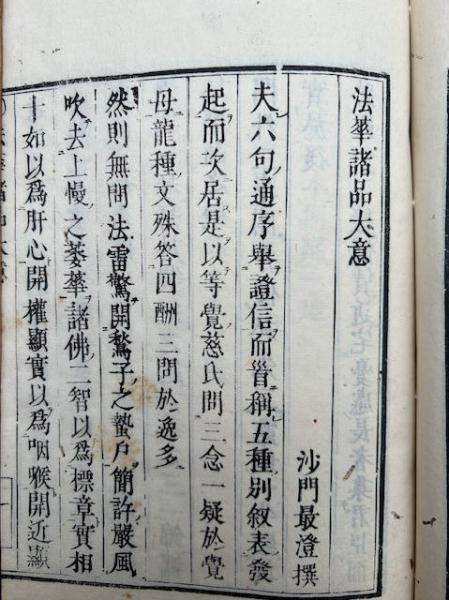 法華諸品大意
沙門最澄撰
夫六句通序舉證信而首稱五種別叙表發
起而次居是以等覺慈氏問三念一疑於覺
母龍種文殊答四酬三問於逸多
然則無問法雷驚開鶖子之蟄戶簡許嚴風
吹去上慢之萎華諸佛二智以爲標章實相
十如以爲肝心開權顯實以爲咽喉開近顯